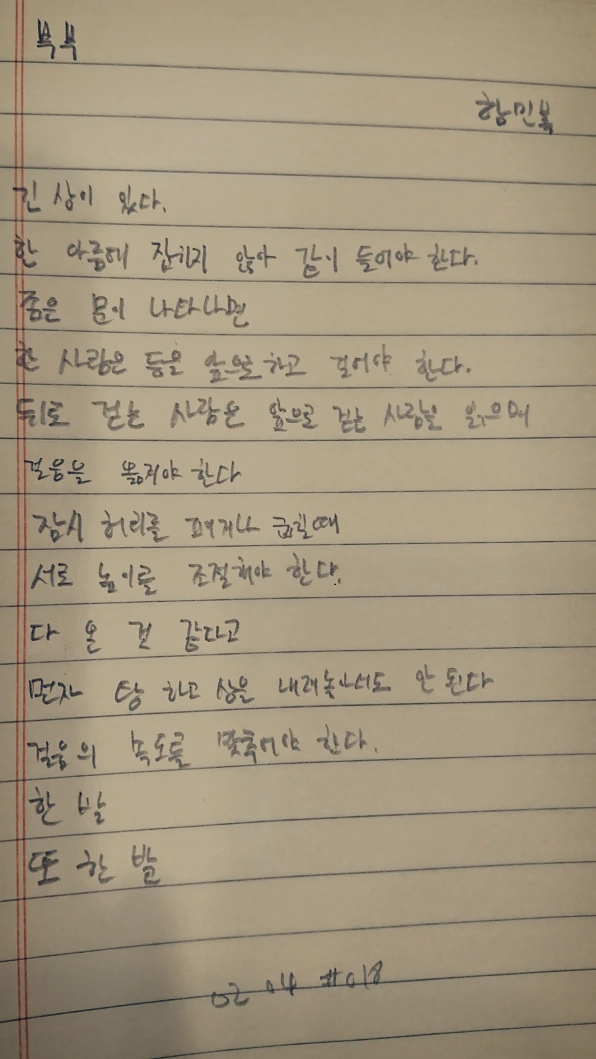 부부
함민복
긴 상이 있다.
한 아름에 잡히지 않아 같이 들어야 한다.
좁은 문이 나타나면
한 사람은 등을 앞으로 하고 걸어야 한다.
뒤로 걷는 사람은 앞으로 걷는 사람을 읽으며
걸음을 옮겨야 한다
잠시 허리를 펴거나 굽힐때
서로 높이를 조절해야 한다.
다 온 것 같다고
먼저 탕 하고 상을 내려놓아서도 안 된다
걸음의 속도를 맞추어야 한다.
한 발
또 한 발
02 04 #018